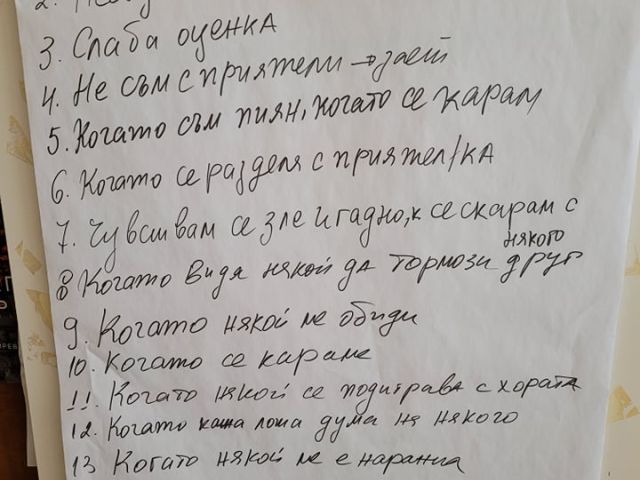 2.
3. Слаба оценка
4. Не съм с приятели → заети
5. Когато съм пиян, когато се карам
6. Когато се разделя с приятел/ка
7. Чувствам се зле и гадно, к се скарам с
някого
8 Когато видя някой да тормози друг
9. Когато някой ме обиди
10. Когато се караме
11. Когато някой се подиграва с хората
12. Когато кажа лоша дума на някого
13 Когато някой ме е наранил